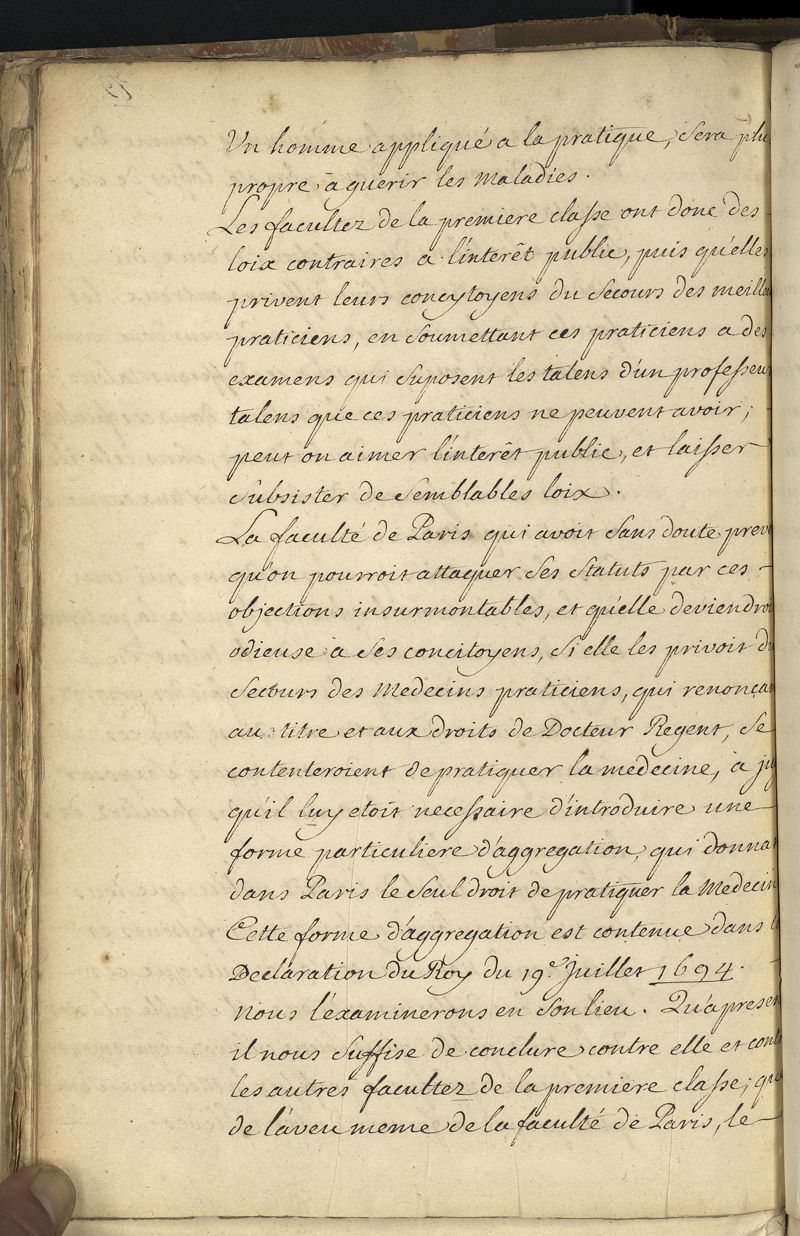 Un homme appliqué a la pratique, sera plu
propre à guerir les Maladies.
Les facultez de la premiere classe ont donc des
loix contraires a l'interêt public, puis qu'elles
privent leurs concytoyens du Secours des meille
praticiens, en Soumettant ces praticiens a des
examens qui Suposent les talens d'un professeur
talens que ces praticiens ne peuvent avoir;
peut on aimer l'interêt public, et laisser
Subsister de Semblables loix.
La faculté de Paris qui avoit Sans doute preve
qu'on pourroit attaquer Ses Statuts par ces
objections insurmontables, et qu'elle deviendroi
odieuse à Ses concitoyens, Si elle les privoit du
Secours des Medecins praticiens, qui renonçan
au titre et aux droits de Docteur Regent, Se
contenteroient de pratiquer la medecine, a jug
qu'il luy etoit necessaire d'introduire une
forme particuliere d'aggregation, qui donnat
dans Paris le Seul droit de pratiquer la Medecin
Cette forme d'aggregation est contenue dans l
Declaration du Roy du 19.e Juillet 1694.
Nous l'éxaminerons en Son lieu. Qu'apresen
il nous Suffise de conclure contre elle et cont
les autres facultez de la premiere classe, que
de l'aveu meme de la faculté de Paris, le